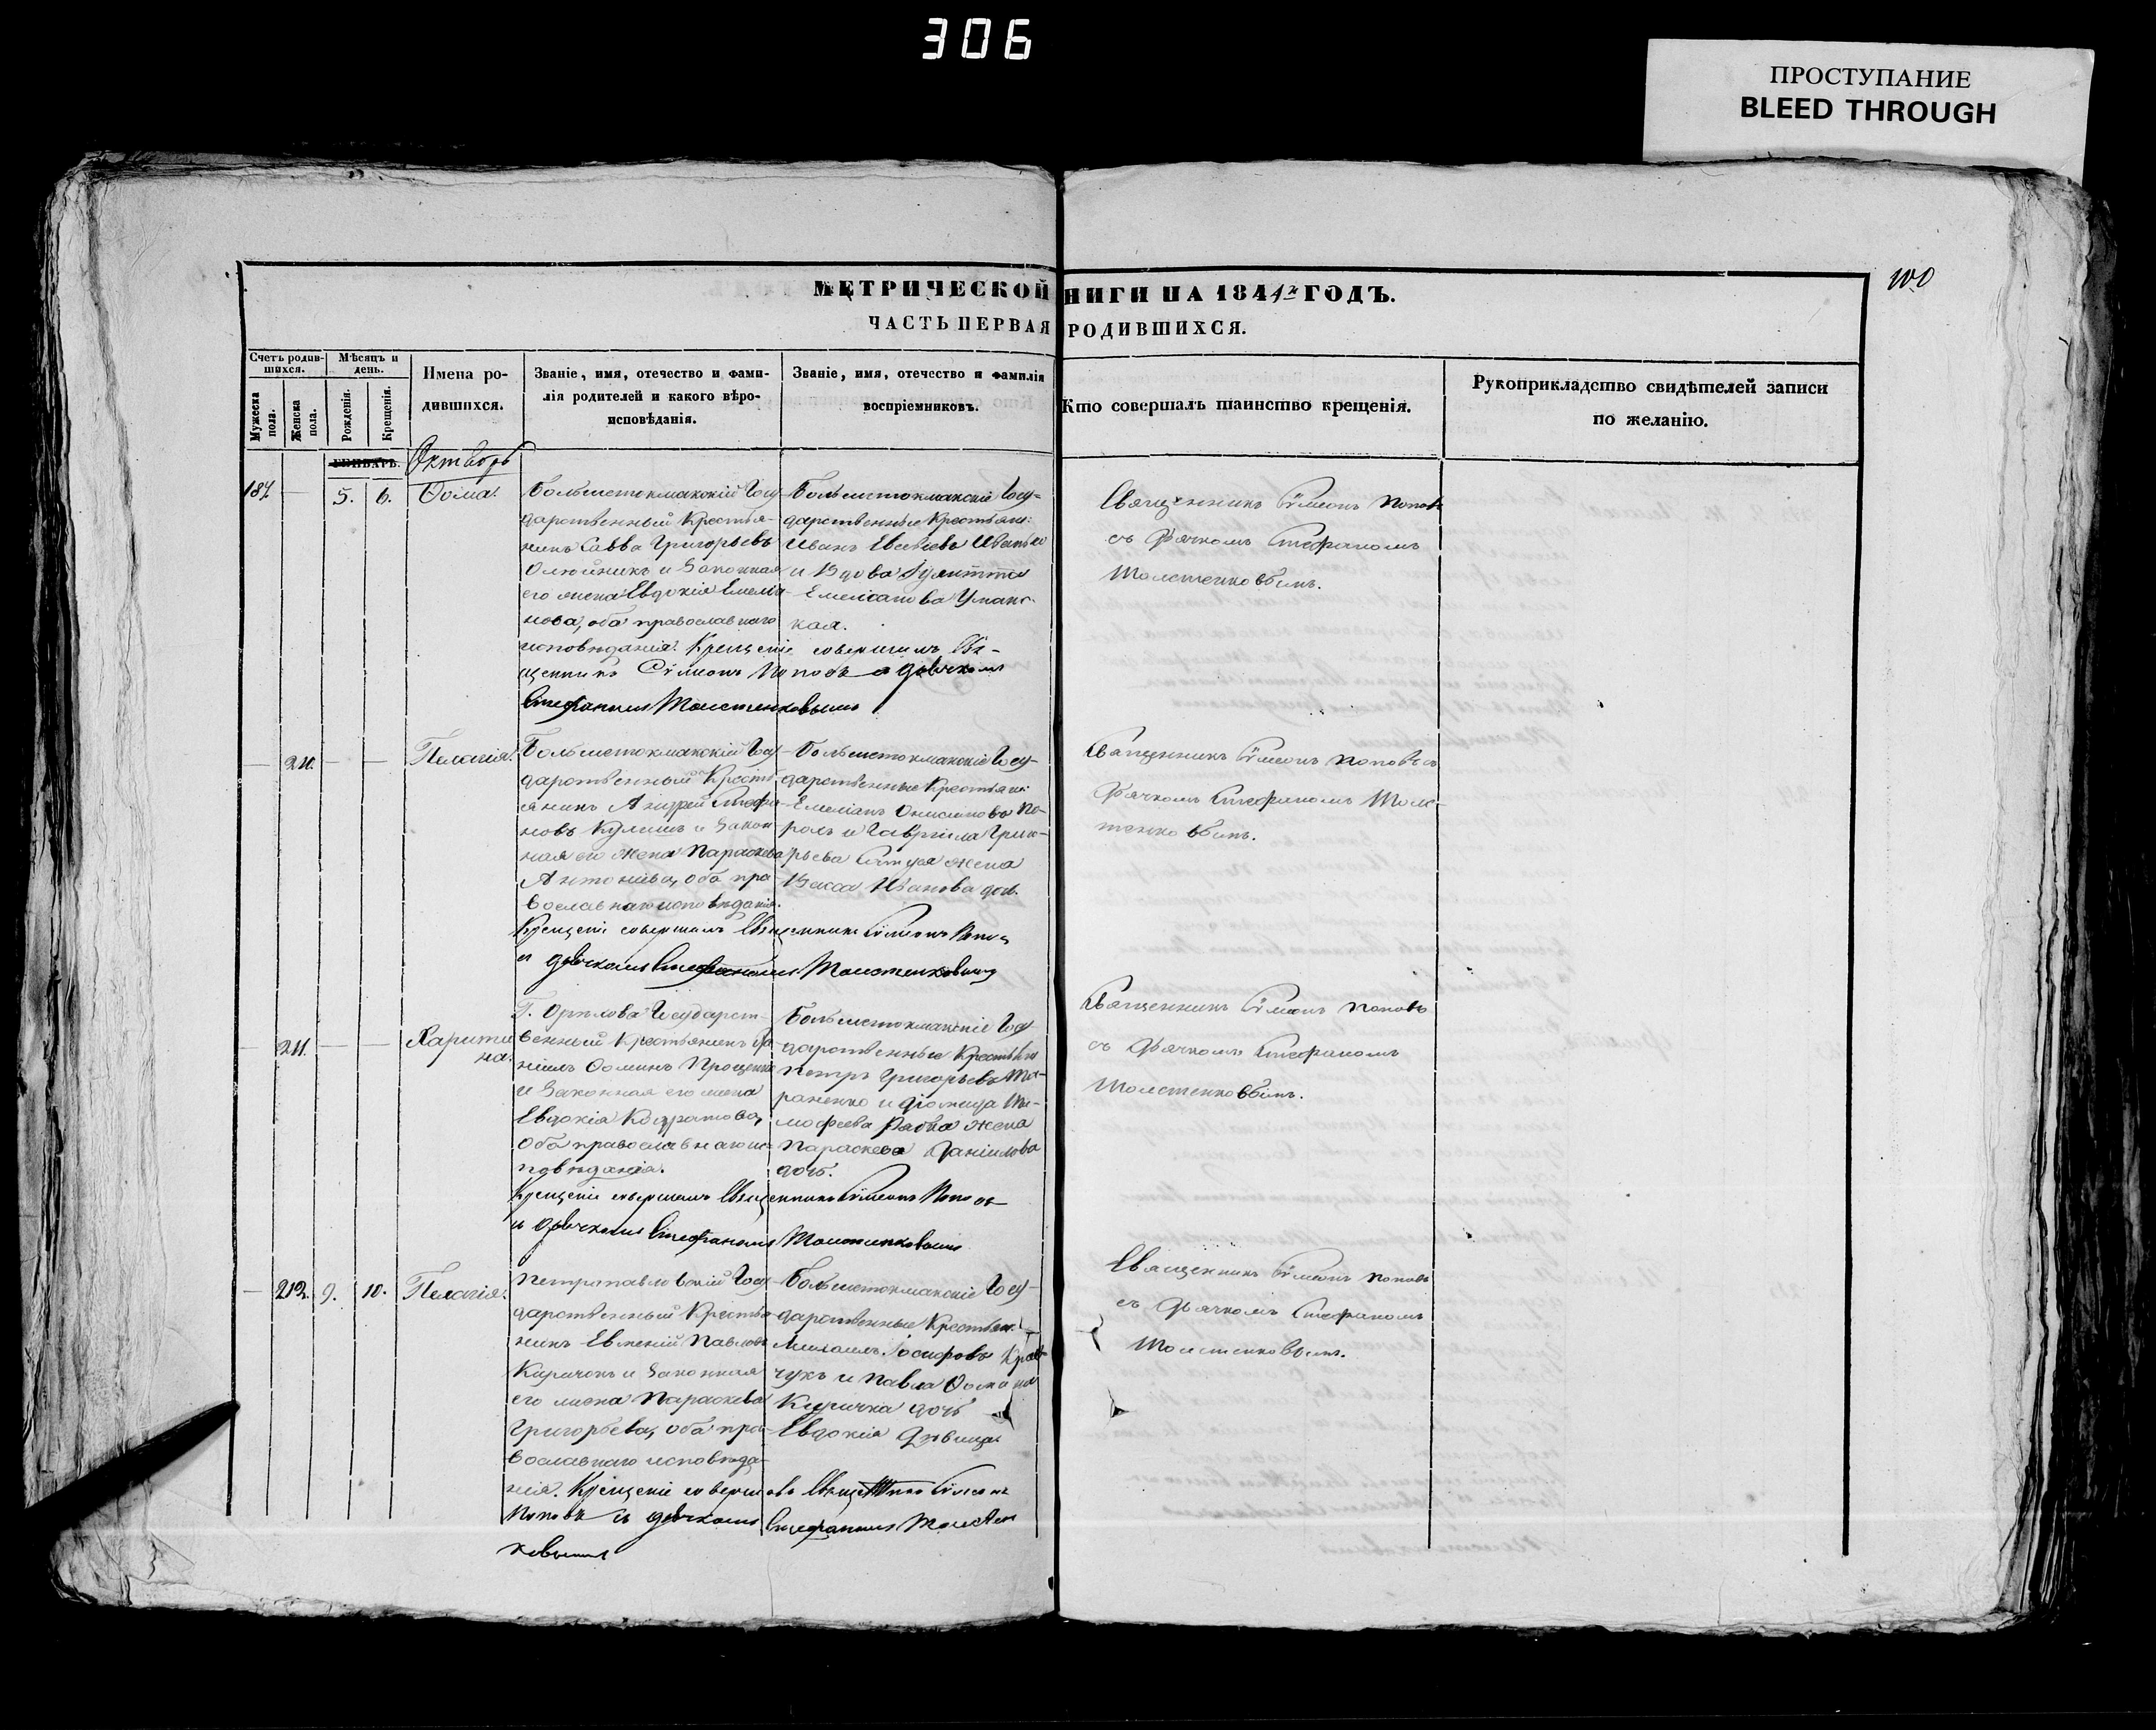 306
ПРОСТУПАНИЕ
BLEED THROUGH
100
МЕТРИЧЕСКОЙ НИГИ НА 1844 ГОДЪ.
ЧАСТЬ ПЕРВАЯ РОДИВШИХСЯ.
Счетъ родившихся.
Мужеска пола.
Женска пола.
Мѣсяцъ и день.
Рожденія.
Крещенія.
Имена родившихся.
Званіе, имя, отечество и фамилія родителей и какого вѣроисповѣданія.
Званіе, имя, отечество и фамилія воспріемниковъ.
Кто совершалъ таинство крещенія.
Рукоприкладство свидѣтелей записи
по желанію.
ГЕНВАРЬ.
Октябрь
187.
5.
6.
Ѳома.
Большетокмакскій Госу-
дарственный Крестья-
нинъ Савва Григорьевъ
Олюйникъ и Законная
его жена Евдокія Емелья-
нова, оба православнаго
исповѣданія. Крещеніе совершилъ Свя-
щенникъ Сѵмеонъ Поповъ с дьячкомъ
Стефаномъ Толстенковымъ
Большетокмакскіе Госу-
дарственные Крестьяне:
Иванъ
и Вдова
Емеліанова Уманс-
кая.
Священникъ Сѵмеонъ Поповъ
съ Дьячкомъ Стефаномъ
Толстенковымъ.
210.
Пелагія.
Большетокмакскій Госу-
дарственный Кресть-
янинъ Андрей Стефа-
новъ Кулишъ и Закон-
ная его жена Параскева
Антонiева, оба пра-
вославнаго исповѣданія.
Крещеніе совершилъ Священникъ Сѵмеонъ Поповъ
съ дьячкомъ Стефаномъ Толстенковымъ
Большетокмакскіе Госу-
дарственные Крестьяне:
Емеліанъ Онисимовъ Мо-
роль и Гавріила Григо-
рьева жена
Васса Иванова дочь.
Священникъ Сѵмеонъ Поповъ съ
Дьячкомъ Стефаномъ Толс-
тенковымъ.
211.
Харити-
на.
Г. Орѣхова Государст-
венный Крестьянинъ Да-
ніилъ Ѳоминъ Проценко
и Законная его жена
Евдокія Кодратова,
оба православнаго ис-
повѣданія.
Крещеніе совершилъ Священникъ Сѵмеонъ Поповъ
съ дьячкомъ Стефаномъ Толстенковымъ
Большетокмакскіе Госу-
дарственные Крестьяне
Петръ Григорьевъ Та-
раненко и Ти-
мофеева жена
Параскева Даніилова
дочь.
Священникъ Сѵмеонъ Поповъ
съ Дьячкомъ Стефаномъ
Толстенковымъ.
212.
9.
10.
Пелагія.
Петропавловскій Госу-
дарственный Крестья-
нинъ Евгеній Павловъ
Киричокъ и Законная
его жена Параскева
Григорьева, оба пра-
вославнаго исповѣда-
нія. Крещеніе совершилъ Священникъ Сѵмеонъ
Поповъ съ дьячкомъ Стефаномъ Толстен
ковымъ
Большетокмакскіе Госу-
дарственные Крестьяне:
Михаилъ Іосифовъ Крав-
чукъ и Павла Ѳомина
Киричка дочь
Евдокія Дѣвица.
Священникъ Сѵмеонъ Поповъ
съ Дьячкомъ Стефаномъ
Толстенковымъ.